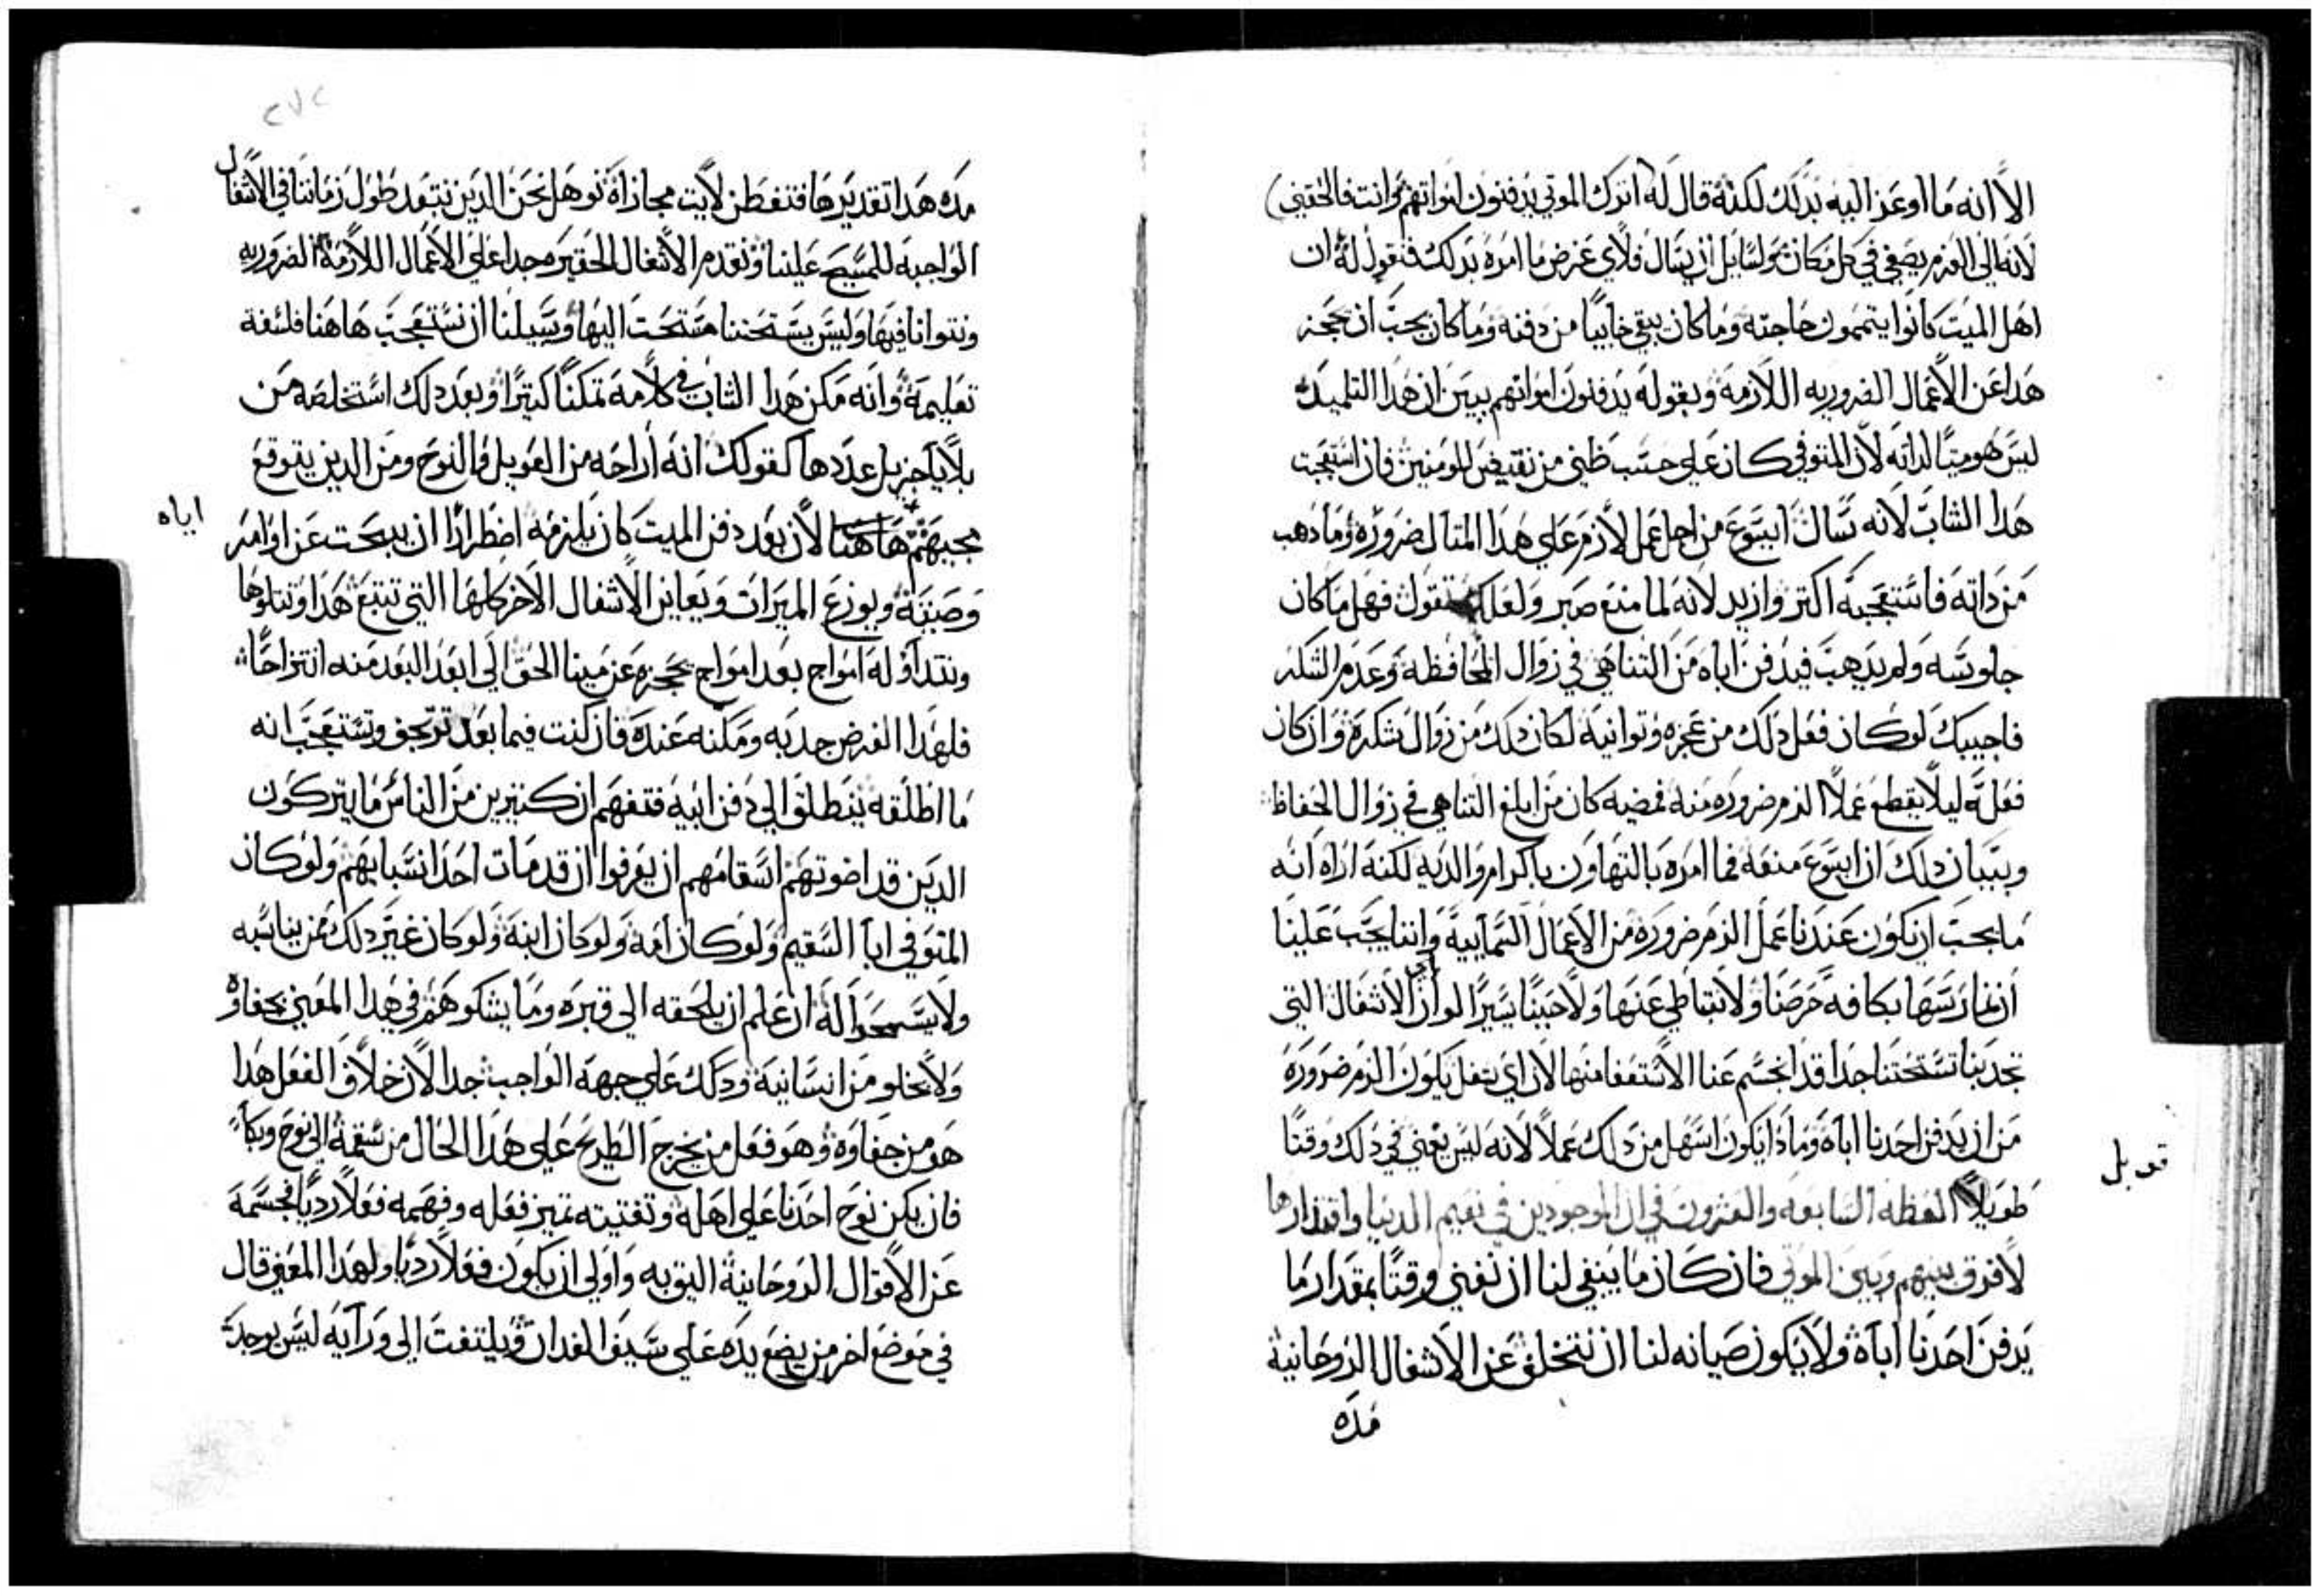 الا انه ما اوعز اليه بذلك لكنه قال له اترك الموتي يدفنون امواتهم وانت فالحقني
لانه الي العزم يصغي في كل مكان وليسايل ان يسال فلاي غرض ما امره بذلك فنقول له ان
اهل الميت كانوا يتممون حاجته وما كان يبقي خايبا من دفنه وما كان يجب ان يحجز
هدا عن الاعمال الضروريه اللازمة وبقوله يدفنون امواتهم يبين ان هدا التلميد
ليس هو ميتا لداته لان المتوفي كان علي حسب ظني من نقيض المومنين فان استعجبت
هدا الشاب لانه سال ايسوع من اجل عمل لازم علي هدا المتال ضروره وما دهب
من داته فاستعجبه اكتر وازيد لانه لما منع صبر ولعلك تقول فهل ما كان
جلوسه ولم يدهب فيدفن اباه من التناهي في زوال المحافظه وعدم الشكر
فاجيبك لو كان فعل دلك من عجزه وتوانيه لكان دلك من زوال شكره وان كان
فعله ليلا يقطع عملا الزم ضروره منه فمضيه كان من ابلغ التناهي في زوال الحفاظ
وبتبان دلك ان ايسوع منعه فما امره بالتهاون باكرام والديه لكنه اراه انه
ما يجب ان يكون عندنا عمل الزم ضروره من الاعمال السماييه واننا يجب علينا
ان نمارسها بكافه حرصنا ولا نتباطي عنها ولا حينا يسيرا لو ان الاشغال التي
تجدبنا تستحتنا جدا قد انجسم عنا الاستعفا منها لان اي شغل يكون الزم ضروره
من ان يدفن احدنا اباه وما دا يكون اسهل من دلك عملا لانه ليس يغني في دلك وقتا
قوبل
طويلا العظه السابعه والعشرون في ان الموجودين في نعيم الدنيا واقتدارها
لا فرق بينهم وبين الموتي فان كان ما ينبغي لنا ان نغني وقتا بمقدار ما
يدفن احدنا اباه ولا يكون صيانه لنا ان نتخلف عن الاشغال الروحانية
مده
٢٧٢
مده هدا تقديرها فتفطن لايت مجازاة نوهل نحن الدين نبتعد طول زماننا في الاشغال
الواجبه للمسيح علينا ونقدم الاشغال الحقيره جدا علي الاعمال اللازمة الضروريه
ونتوانا فيها وليس يستحتنا مستحت اليها وسبيلنا ان نستعجب هاهنا فلسفة
تعليمه وانه مكن هدا الشاب في كلامه تمكنا كتيرا وبعد دلك استخلصه من
بلايا جزيل عددها كقولك انه اراحه من العويل والنوح ومن الدين يتوقع
مجيهم هاهنا لان بعد دفن الميت كان يلزمه اضطرارا ان يبحت عن اوامر
اباه
وصيته ويوزع الميرات ويعاين الاشغال الاخر كلها التي تتبع هدا وتتلوها
وتتداوله امواج بعد امواج تحجزه عن مينا الحق الي ابعد البعد منه انتزاحا
فلهدا الغرض جدبه ومكنه عنده فان كنت فيما بعد ترتجف وتستعجب انه
ما اطلقه ينطلق الي دفن ابيه فتفهم ان كتيرين من الناس ما يتركون
الدين قد اضوتهم اسقامهم ان يعرفوا ان قد مات احد انسبايهم ولو كان
المتوفي ابا السقيم ولو كان امه ولو كان ابنه ولو كان غير دلك ممن يناسبه
ولا يسمحوا له ان علم ان يلحقه الي قبره وما يشكو هم في هدا المعني بجفاوة
ولا بخلو من انسانيه ودلك علي جهة الواجب جدا لان خلاف الفعل هدا
هو من جفاوة وهو فعل من يخرج الطريح علي هدا الحال من سقمه الي نوح وبكاء
فان يكن نوح احدنا علي اهله وتفتيته تميز فعله وفهمه فعلا رديا فجسمه
عن الاقوال الروحانية اليق به واولي ان يكون فعلا رديا ولهدا المعني قال
في موضع اخر من يضع يده علي سيف الفدان ويلتفت الي ورايه ليس يوجد